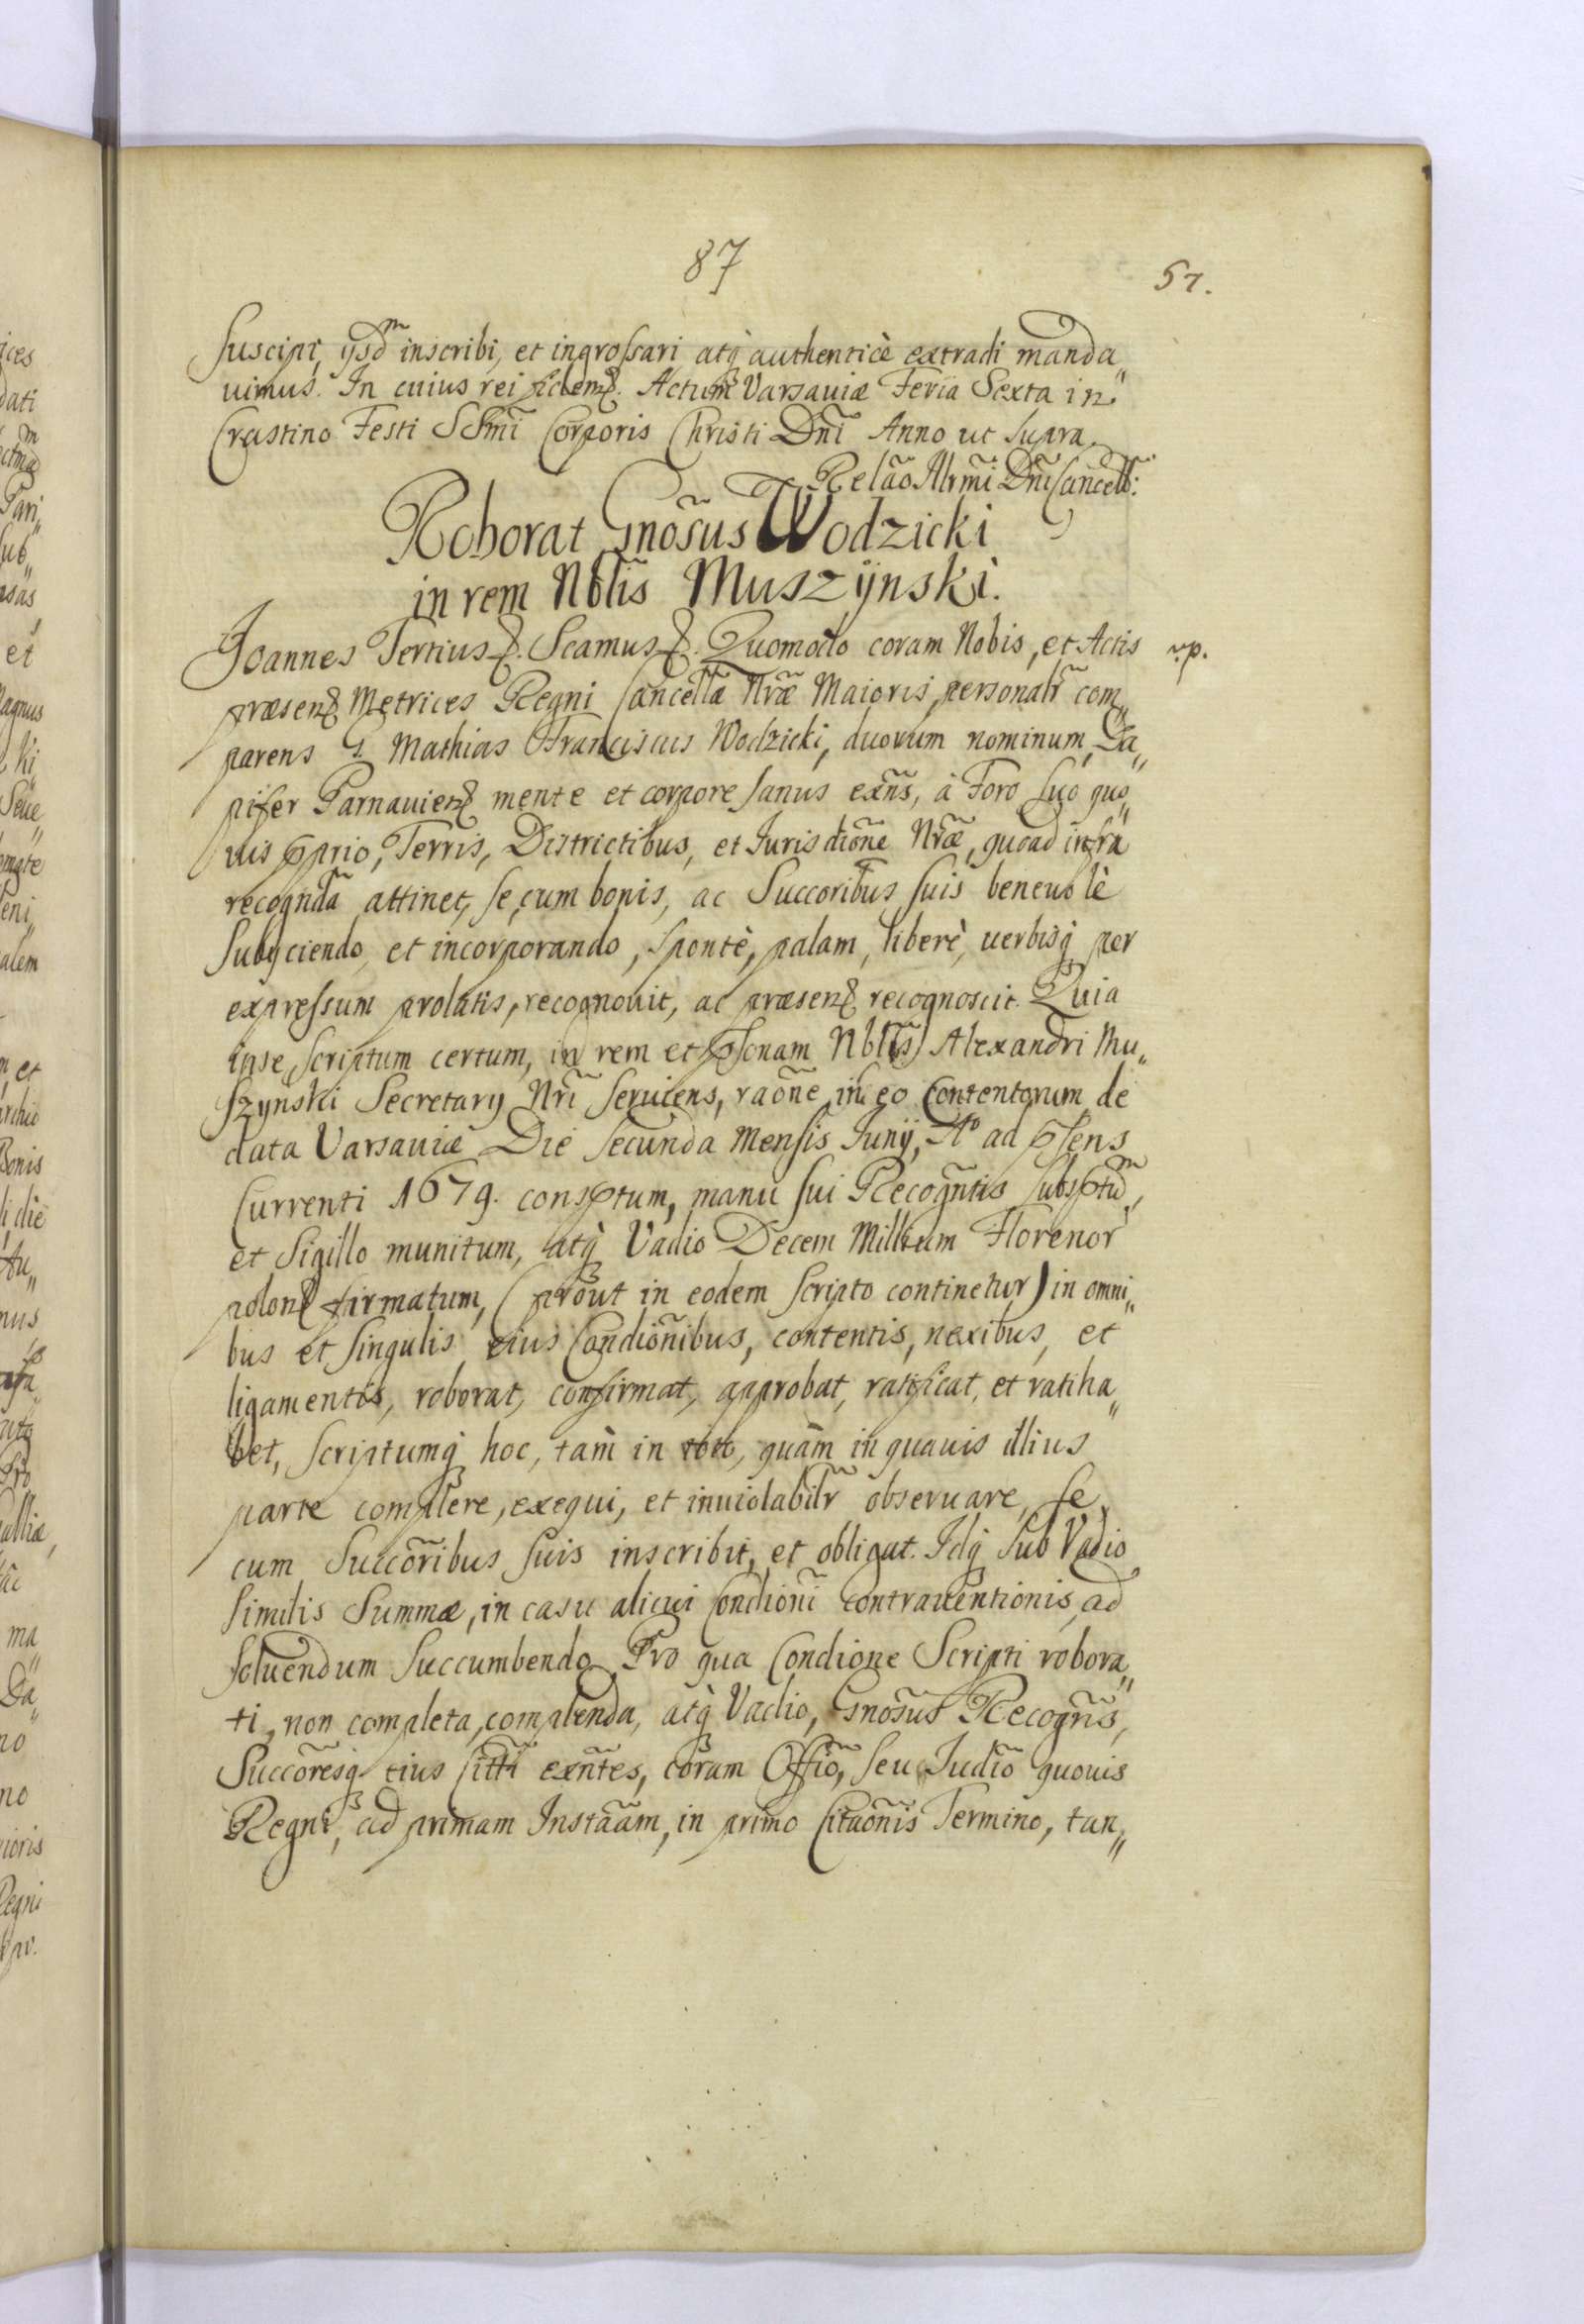 87
57.
suscipi, ijsdm inscribi, et ingrossari atq̀ authenticè extradi manda„
uimus. In cuius rei fidem. Actum Varsauiæ Feria Sexta in
Crastino Festi SSmĩ Corporis Christi Dnĩ Anno ut supra.
Relaõ Illrmĩ Dnĩ Cancell:
Roborat Gnõsus Wodzicki
in rem Nblĩs Muszÿnski.
Joannes Tertius. Scamus. Quomodo coram Nobis, et Actis
v.p.
præsen Metrices Regni Cancellæ Nræ̃ Maioris, personalr̃ com„
parens G. Mathias Franciscus Wodzicki, duorum nominum, Da„
pifer Parnauien mente et corpore sanus exñs, à Foro suo quo„
uis pprio, Terris, Districtibus, et Iurisdiõne Nræ̃, quoad infra
recogndã attinet, se, cum bonis, ac Succoribus suis beneuolè
subijciendo, et incorporando, spontè, palam, liberè, uerbisq̀ per
expressum prolatis, recognouit, ac præsen recognoscit. Quia
ipse, scriptum certum, in rem et psonam Nblĩs Alexandri Mu„
szynski Secretarij Nrĩ seruiens, raõne in eo Contentorum de
data Varsauiæ Die secunda mensis Junij, Aº ad psens
Currenti 1679. consptum, manu sui Recogñtis subsptũm,
et Sigillo munitum, atq̀ Vadio Decem Millium Florenor
polon firmatum, (prout in eodem scripto continetur) in omni„
bus et singulis eius Condiõnibus, contentis, nexibus, et
ligamentis, roborat, confirmat, approbat, ratificat, et ratiha„
bet, scriptumq̀ hoc, tam̀ in toto, quam̀ in quauis illius
parte complere, exequi, et inuiolabilr̃ obseruare, se
cum Succõribus suis inscribit, et obligat. Idq̀ sub Vadio
similis Summæ, in casu alicui Condionĩ contrauentionis, ad
soluendum succumbendo. Pro qua Condione Scripti robora„
ti, non completa, complenda, atq̀ Vadio, Gnõsus Recogñs,
Succõresq eius citti exñtes, coram Offiõ, seu Judiõ quouis
Regni, ad primam Instãam, in primo Citaõnis Termino, tan„